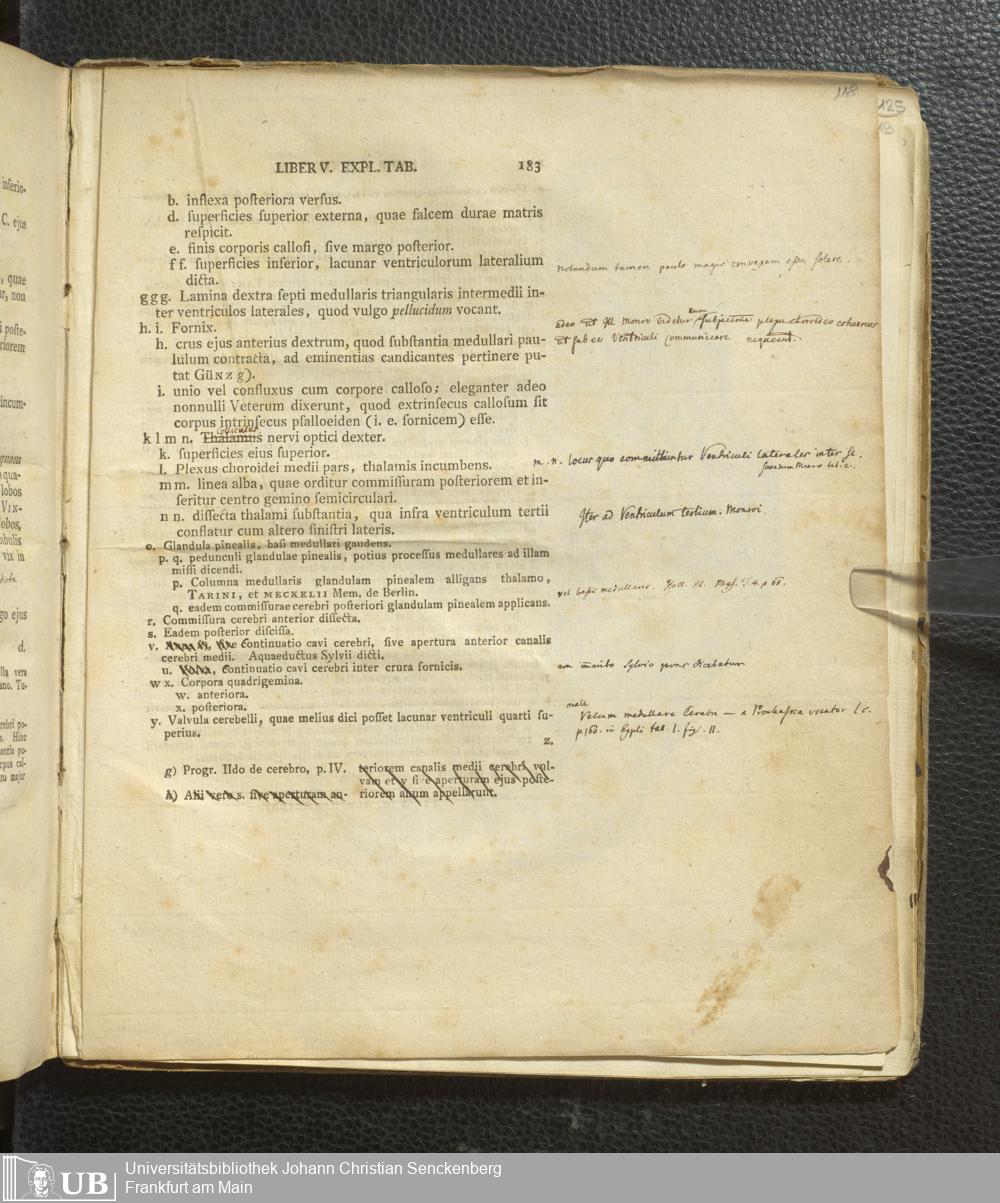 118
125
LIBER V. EXPL. TAB. 183
b. inflexa poſteriora verſus.
d. ſuperficies ſuperior externa, quae falcem durae matris
reſpicit.
e. finis corporis calloſi, ſive margo poſterior.
f f. ſuperficies inferior, lacunar ventriculorum lateralium
dicta.
Notandum tamen paulo magis convexam eſſe ſolere.
g g g. Lamina dextra ſepti medullaris triangularis intermedii in-
ter ventriculos laterales, quod vulgo pellucidum vocant.
h. i. Fornix.
adeo ut Ill Monro videtur cum ſubjacente plexu choroideo cohaereat
ut ſub eo Ventriculi communicare nequeant.
h. crus ejus anterius dextrum, quod ſubſtantia medullari pau-
lulum contracta, ad eminentias candicantes pertinere pu-
tat GÜNZ g).
i. unio vel confluxus cum corpore calloſo; eleganter adeo
nonnulli Veterum dixerunt, quod extrinſecus calloſum ſit
corpus intrinſecus pſalloeiden (i. e. fornicem) eſſe.
Colliculus
k l m n. Thalamus nervi optici dexter.
k. ſuperficies eius ſuperior.
l. Plexus choroidei medii pars, thalamis incumbens.
m. n. locus quo committuntur Ventriculi laterales inter ſe.
ſecundum Monro tab.
m m. linea alba, quae orditur commiſſuram poſteriorem et in-
ſeritur centro gemino ſemicirculari.
n n. diſſecta thalami ſubſtantia, qua infra ventriculum tertii
conflatur cum altero ſiniſtri lateris.
Iter ad Ventriculum tertium. Monroi
o. Glandula pinealis, baſi medullari gaudens.
p. q. pedunculi glandulae pinealis, potius proceſſus medullares ad illam
miſſi dicendi.
p. Columna medullaris glandulam pinealem alligans thalamo,
TARINI, et MECKELII Mem. de Berlin.
vel baſis medullaris. Hall. El. Phyſ. T. 4. p 66.
q. eadem commiſſurae cerebri poſteriori glandulam pinealem applicans.
r. Commiſſura cerebri anterior diſſecta.
s. Eadem poſterior diſciſſa.
v. Continuatio cavi cerebri, ſive apertura anterior canalis
cerebri medii. Aquaeductus Sylvii dicti.
u. Continuatio cavi cerebri inter crura fornicis.
non immerito Sylvio pons dicebatur
w x. Corpora quadrigemina.
w. anteriora.
x. poſteriora.
y. Valvula cerebelli, quae melius dici poſſet lacunar ventriculi quarti ſu-
perius.
male
Velum medullare Cerebri — a Prochaſka vocatur l. c.
p. 160. tab. I. fig. 11.
z.
g) Progr. IIdo de cerebro, p. IV.
h) Alii vero s. ſive aperturam an-
teriorem canalis medii cerebri vul-
vam et v ſi e aperturam ejus poſte-
riorem anum appellarunt.
inferio-
C. ejus
, quae
ar, non
i poſte-
riorem
incum-
quam
lobos
VIN-
lobos,
abulis
vix in
go ejus
d.
lla vera
ano. Tu-
rebri po-
Hinc
antia po-
rpus cal-
ro major
UB
Universitätsbibliothek Johann Christian Senckenberg
Frankfurt am Main